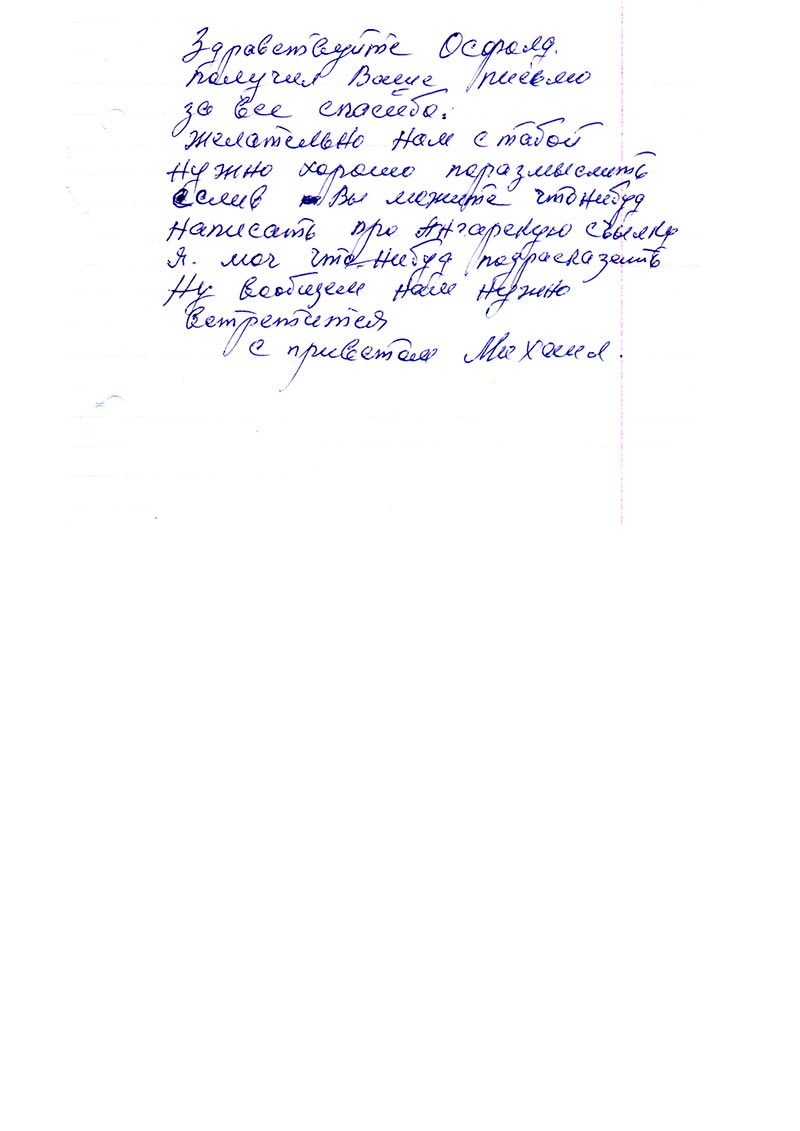 Здравствуйте Осфалд.
получил Ваше письмо
за все спасибо.
желательно нам с табой
нужно хорошо паразмыслить
если Вы можите чтонибудь
написать про Ангарскую ссылку
я. мог что-нибуд подрасказать
Ну вообщем нам нужно
встретится
с приветам Михаил.